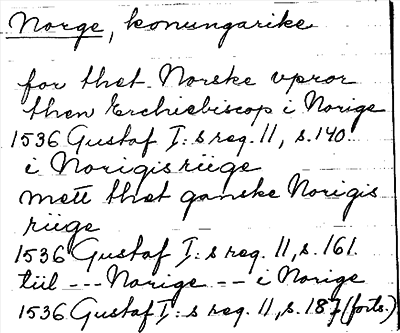 Norge, konungarike
for thet Norske vpror
then Erchiebiscop i Norige
1536 Gustaf I:s reg. 11, s. 140.
i Norigis riige
mett thet ganske Norigis
riige
1536 Gustaf I:s reg. 11, s. 161.
tiil --- Norige --- i Norige
1536 Gustaf I:s reg. 11, s. 187 (forts.)